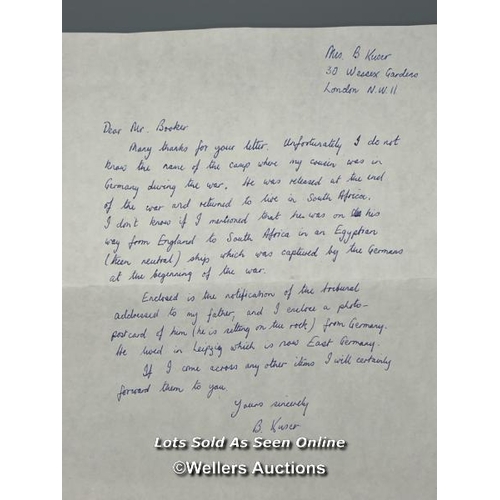 Mrs. B Kuser
30 Wessex Gardens
London N.W.11
Dear Mr. Booker
Many thanks for your letter. Unfortunately I do not
know the name of the camp where my cousin was in
Germany during the war. He was released at the end
of the war and returned to live in South Africa.
I don't know if I mentioned that he was on his
way from England to South Africa in an Egyptian
(then neutral) ship which was captured by the Germans
at the beginning of the war.
Enclosed is the notification of the tribunal
addressed to my father, and I enclose a photo-
postcard of him (he is sitting on the rock) from Germany.
He lived in Leipzig which is now East Germany.
If I come across any other items I will certainly
forward them to you.
Yours sincerely
B. Kuser
Lots Sold As Seen Online
©Wellers Auctions